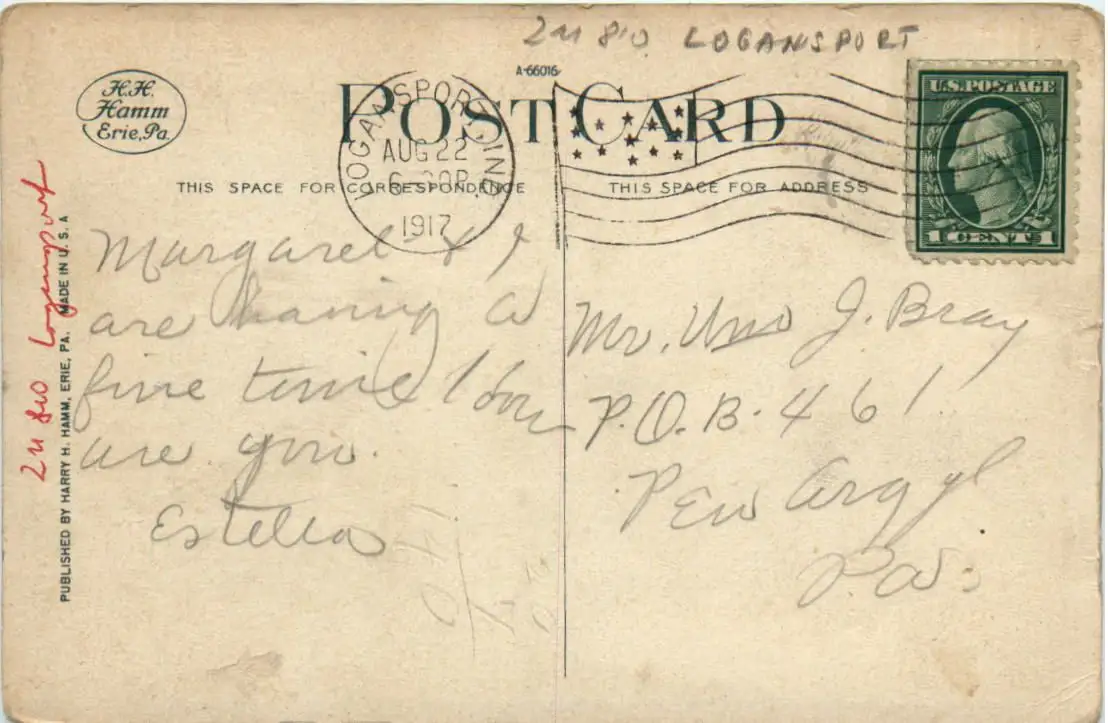 2M 810 LOGANSPORT
A-66016
H.H.
Hamm
Erie, Pa.
POST CARD
LOGANSPORT, IND.
AUG 22
6-30P
1917
U.S. POSTAGE
1 CENT 1
THIS SPACE FOR CORRESPONDENCE
THIS SPACE FOR ADDRESS
Margaret & I
are having a
fine time How
are you.
Estella
Mr. Uno J. Bray
P.O.B. 461
Pen Argyl
Pa.
2M 810 Logansport
PUBLISHED BY HARRY H. HAMM, ERIE, PA. MADE IN U.S.A